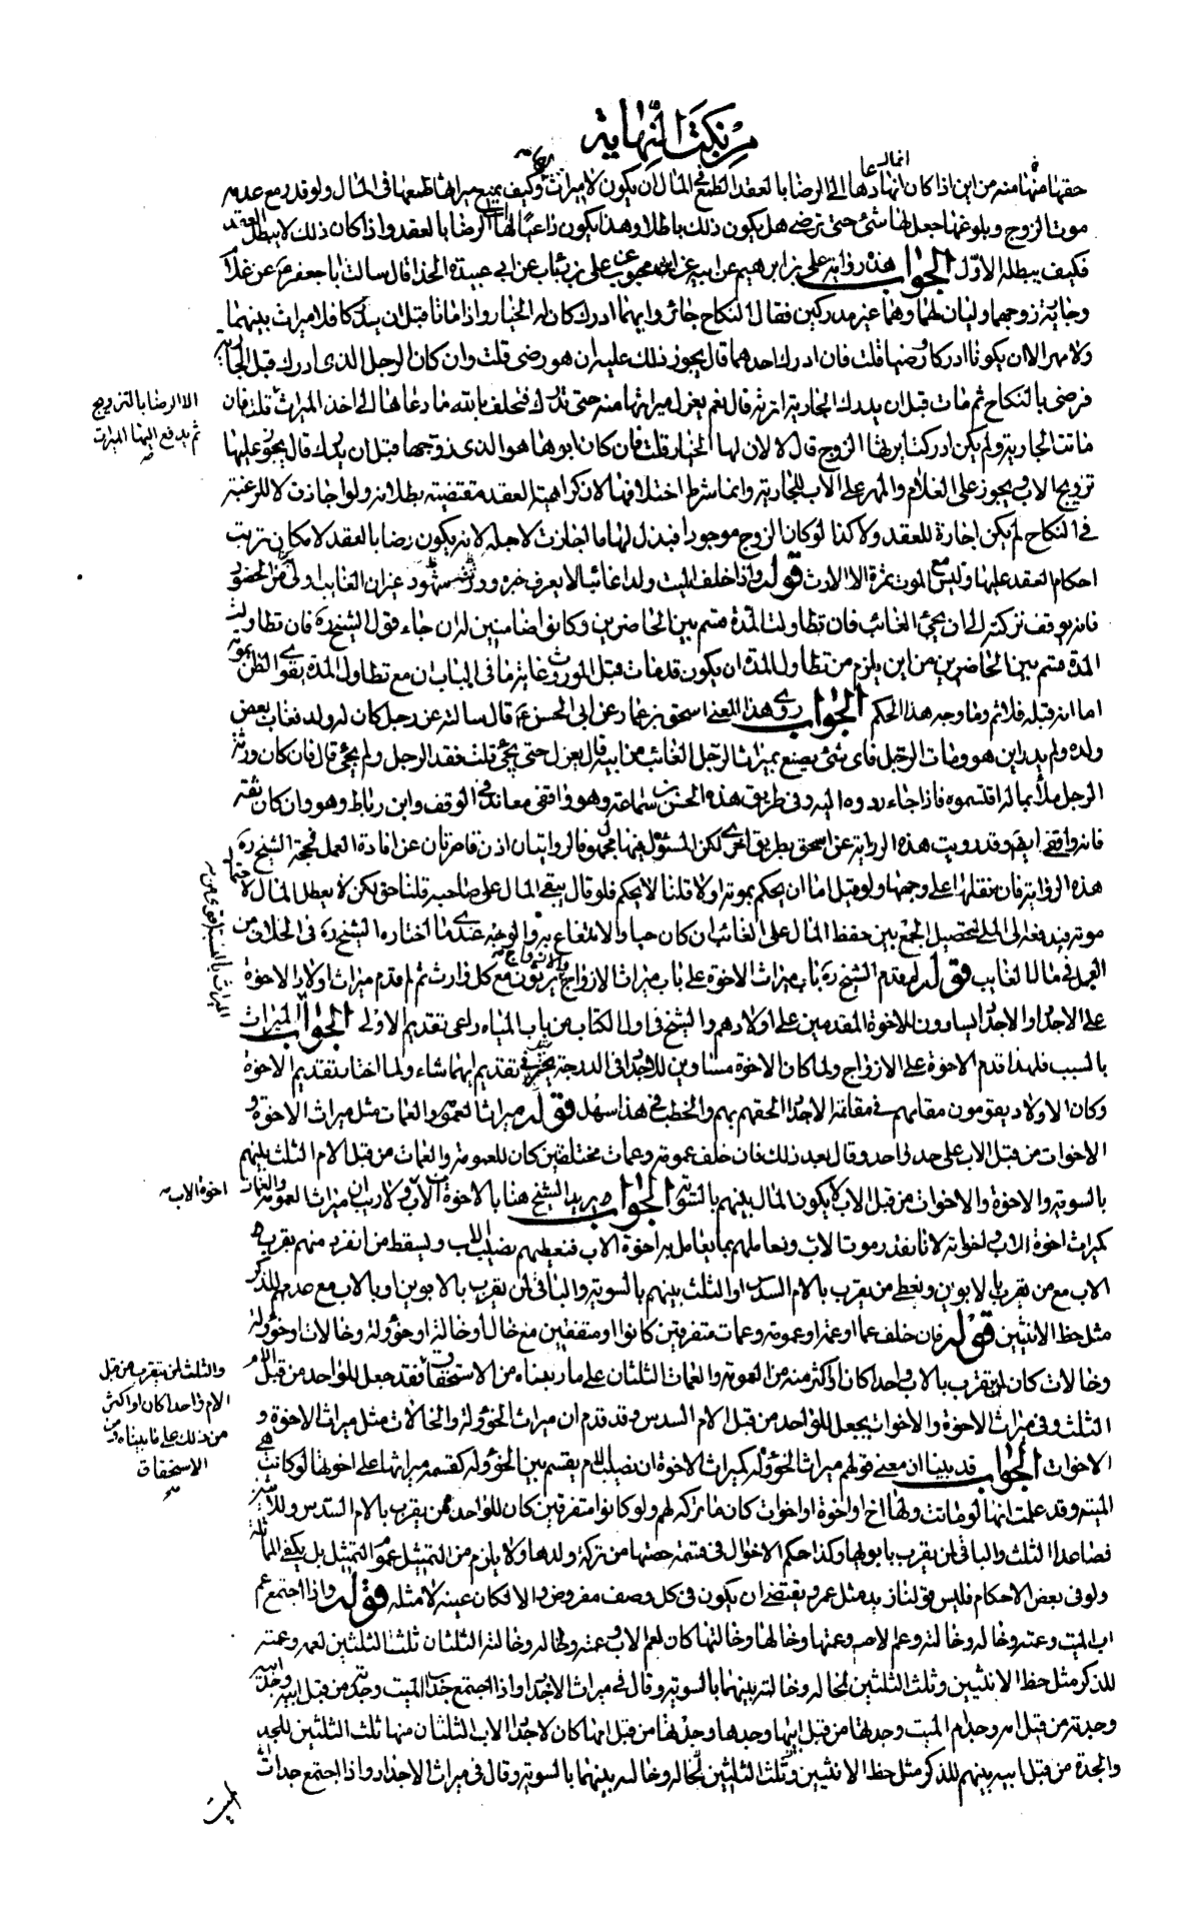 من نكت النهاية
حقها منها منه من اين اذا كان انما دعاها الى الرضا بالعقد الطمع في المال ان يكون لا ميراث وكيف يمنع ميراثها طمعها فى المال ولو قدر مع عدم
موت الزوج وبلوغها جعل لها شئ حتى ترضى هل يكون ذلك باطلا وهذا يكون داعيا لها الى الرضا بالعقد واذا كان ذلك لا يبطل العقد
فكيف يبطله الاول الجواب هذه رواية على بن ابرهيم عن ابيه عن ابن محبوب عن على بن رئاب عن ابى عبيدة الحذا قال سالت ابا جعفر ع عن غلام
وجارية زوجهما وليان لهما وهما غير مدركين فقال النكاح جائز وايهما ادرك كان له الخيار واذا ماتا قبل ان يدركا فلا ميراث بينهما
ولا مهر الا ان يكونا ادركا ورضيا قلت فان ادرك احدهما قال يجوز ذلك عليه ان هو رضى قلت وان كان الرجل الذى ادرك قبل الجارية
فرضى بالنكاح ثم مات قبل ان يدرك الجارية اترثه قال نعم يعزل ميراثها منه حتى تدرك فتحلف بالله ما دعاها الى اخذ الميراث قلت فان
الا الرضا بالتزويج
ثم يدفع اليها الميراث
ماتت الجارية ولم يكن ادركت ايرثها الزوج قال لا لان لها الخيار قلت فان كان ابوها هو الذى زوجها قبل ان يدرك قال يجوز عليها
تزويج الاب ويجوز على الغلام والمهر على الاب للجارية وانما شرط احلافها لان كراهية العقد مقتضية بطلانه ولو اجازت لا للرغبة
فى النكاح لم يكن اجازة للعقد ولا كذا لو كان الزوج موجودا فبذل لها ما اجازت لاجله لانه يكون رضا بالعقد لامكان ترتب
احكام العقد عليها وليس مع الموت ثمرة الا الارث قوله واذا خلف الميت ولدا غائبا لا يعرف خبره وورثته شهود غير ان الغائب اولى من الحضور
فانه يوقف تركته الى ان يجئ الغائب فان تطاولت المدة قسم بين الحاضرين وكانوا ضامنين له ان جاء قول الشيخ ره فان تطاولت
المدة قسم بين الحاضرين من اين يلزم من تطاول المدة ان يكون قد مات قبل الموروث وغاية ما فى الباب ان مع تطاول المدة يقوى الظن بموته
اما انه قبله فلا ثم وما وجه هذا الحكم الجواب روى هذا المعنى اسحق بن عمار عن ابى الحسن ع قال سالته عن رجل كان له ولد فغاب بعض
ولده ولم يدر اين هو ومات الرجل فاى شئ يصنع بميراث الرجل الغائب من ابيه قال يعزل حتى يجئ قلت فقد الرجل ولم يجئ قال فان كان ورثة
الرجل ملأ بماله اقتسموه فاذا جاء ردوه اليه وفى طريق هذه الحسن بن سماعة وهو واقفى معاند فى الوقف وابن رباط وهو وان كان ثقة
فانه واقفى ايضا وقد رويت هذه الرواية عن اسحق بطريق اخرى لكن المسئول فيها مجهول فالروايتان اذن قاصرتان عن افادة العمل فحجة الشيخ ره
هذه الرواية فان نقلها على وجهها ولو قيل اما ان يحكم بموته اولا قلنا لا يحكم فلو قال يبقى المال على صاحبه قلنا حق لكن لا يعطل المال لاحتمال
موته فيدفع الى الملي لتحصيل الجمع بين حفظ المال على الغائب ان كان حيا والانتفاع به والوجه عندى ما اختاره الشيخ ره فى الخلاف من
العمل فى مال الغايب قوله لم قدم الشيخ ره باب ميراث الاخوة على باب ميراث الازواج والازواج يرثون مع كل وارث ثم لم قدم ميراث اولاد الاخوة
على الاجداد والاجداد يساوون الاخوة المقدمين على اولادهم والشيخ فى اول الكتاب من باب المياه راعى تقديم الاولى الجواب الميراث
الميراث بالنسب اقوى من
بالسبب فلهذا قدم الاخوة على الازواج ولما كان الاخوة مساوين للاجداد فى الدرجة تخير فى تقديم ايهما شاء ولما اختار تقديم الاخوة
وكان الاولاد يقومون مقامهم فى مقاسمة الاجداد الحقهم بهم والخطب فى هذا سهل قوله ميراث العمومة والعمات مثل ميراث الاخوة و
الاخوات من قبل الاب على حد واحد وقال بعد ذلك فان خلف عمومة وعمات مختلفين كان للعمومة والعمات من قبل الام الثلث بينهم
بالسوية والاخوة والاخوات من قبل الاب لا يكون المال بينهم بالسوية الجواب يريد الشيخ هنا بالاخوة اخوة الاب ولا ريب ان ميراث العمومة والعمات
اخوة الاب
كميراث اخوة الاب واخواته لانا نقدر موت الاب ونعاملهم بما يعامل به اخوة الاب فنعطيهم نصيب الاب ويسقط من انفرد منهم بقرب
الاب مع من يقرب بالابوين ونعطى من يقرب بالام السدس او الثلث بينهم بالسوية والباقى لمن يقرب بالابوين او بالاب مع عدمهم للذكر
مثل حظ الانثيين قوله فان خلف عما او عمة او عمومة وعمات متفرقين كانوا او متفقين مع خال او خالة او خؤولة وخالات او خؤولة
وخالات كان لمن يقرب بالاب واحدا كان او اكثر منه من العمومة والعمات الثلثان على ما ربعناه من الاستحقاق فقد جعل للواحد من قبل الام
والثلث لمن يتقرب من قبل
الام واحدا كان او اكثر
من ذلك على ما بيناه من
الاستحقاق
الثلث وفى ميراث الاخوة والاخوات يجعل للواحد من قبل الام السدس وقد قدم ان ميراث الخؤولة والخالات مثل ميراث الاخوة و
الاخوات الجواب قد بينا ان معنى قولهم ميراث الخؤولة كميراث الاخوة ان نصيب الام يقسم بين الخؤولة كقسمة ميراثها على اخوتها لو كانت هى
الميتة وقد علمت انها لو ماتت ولها اخ او اخوة او اخوات كان ما تركه لهم ولو كانوا متفرقين كان للواحد ممن يقرب بالام السدس وللاثنين
فصاعدا الثلث والباقى لمن يقرب بابويها وكذا حكم الاخوال فى قسمة حصتها من تركة ولدها ولا يلزم من التمثيل عموم التمثيل بل يكفى المماثلة
ولو فى بعض الاحكام فليس قولنا زيد مثل عمرو يقتضى ان يكون فى كل وصف مفروض والا لكان عينه لا مثله قوله واذا اجتمع عم
اب الميت وعمته وخاله وخالته وعم الام وعمتها وخالها وخالتها كان لعم الاب وعمته وخاله وخالته الثلثان ثلثا الثلثين لعمه وعمته
للذكر مثل حظ الانثيين وثلث الثلثين لخاله وخالته بينهما بالسوية وقال فى ميراث الاجداد واذا اجتمع جد اب الميت وجدته من قبل ابيه وجده
وجدته من قبل امه وجد ام الميت وجدتها من قبل ابيها وجدها وجدتها من قبل امها كان لاجداد الاب الثلثان منها ثلث الثلثين للجد
والجدة من قبل ابيه بينهم للذكر مثل حظ الانثيين وثلث الثلثين لخاله وخالته بينهما بالسوية وقال فى ميراث الاجداد واذا اجتمع جد اب
الميت